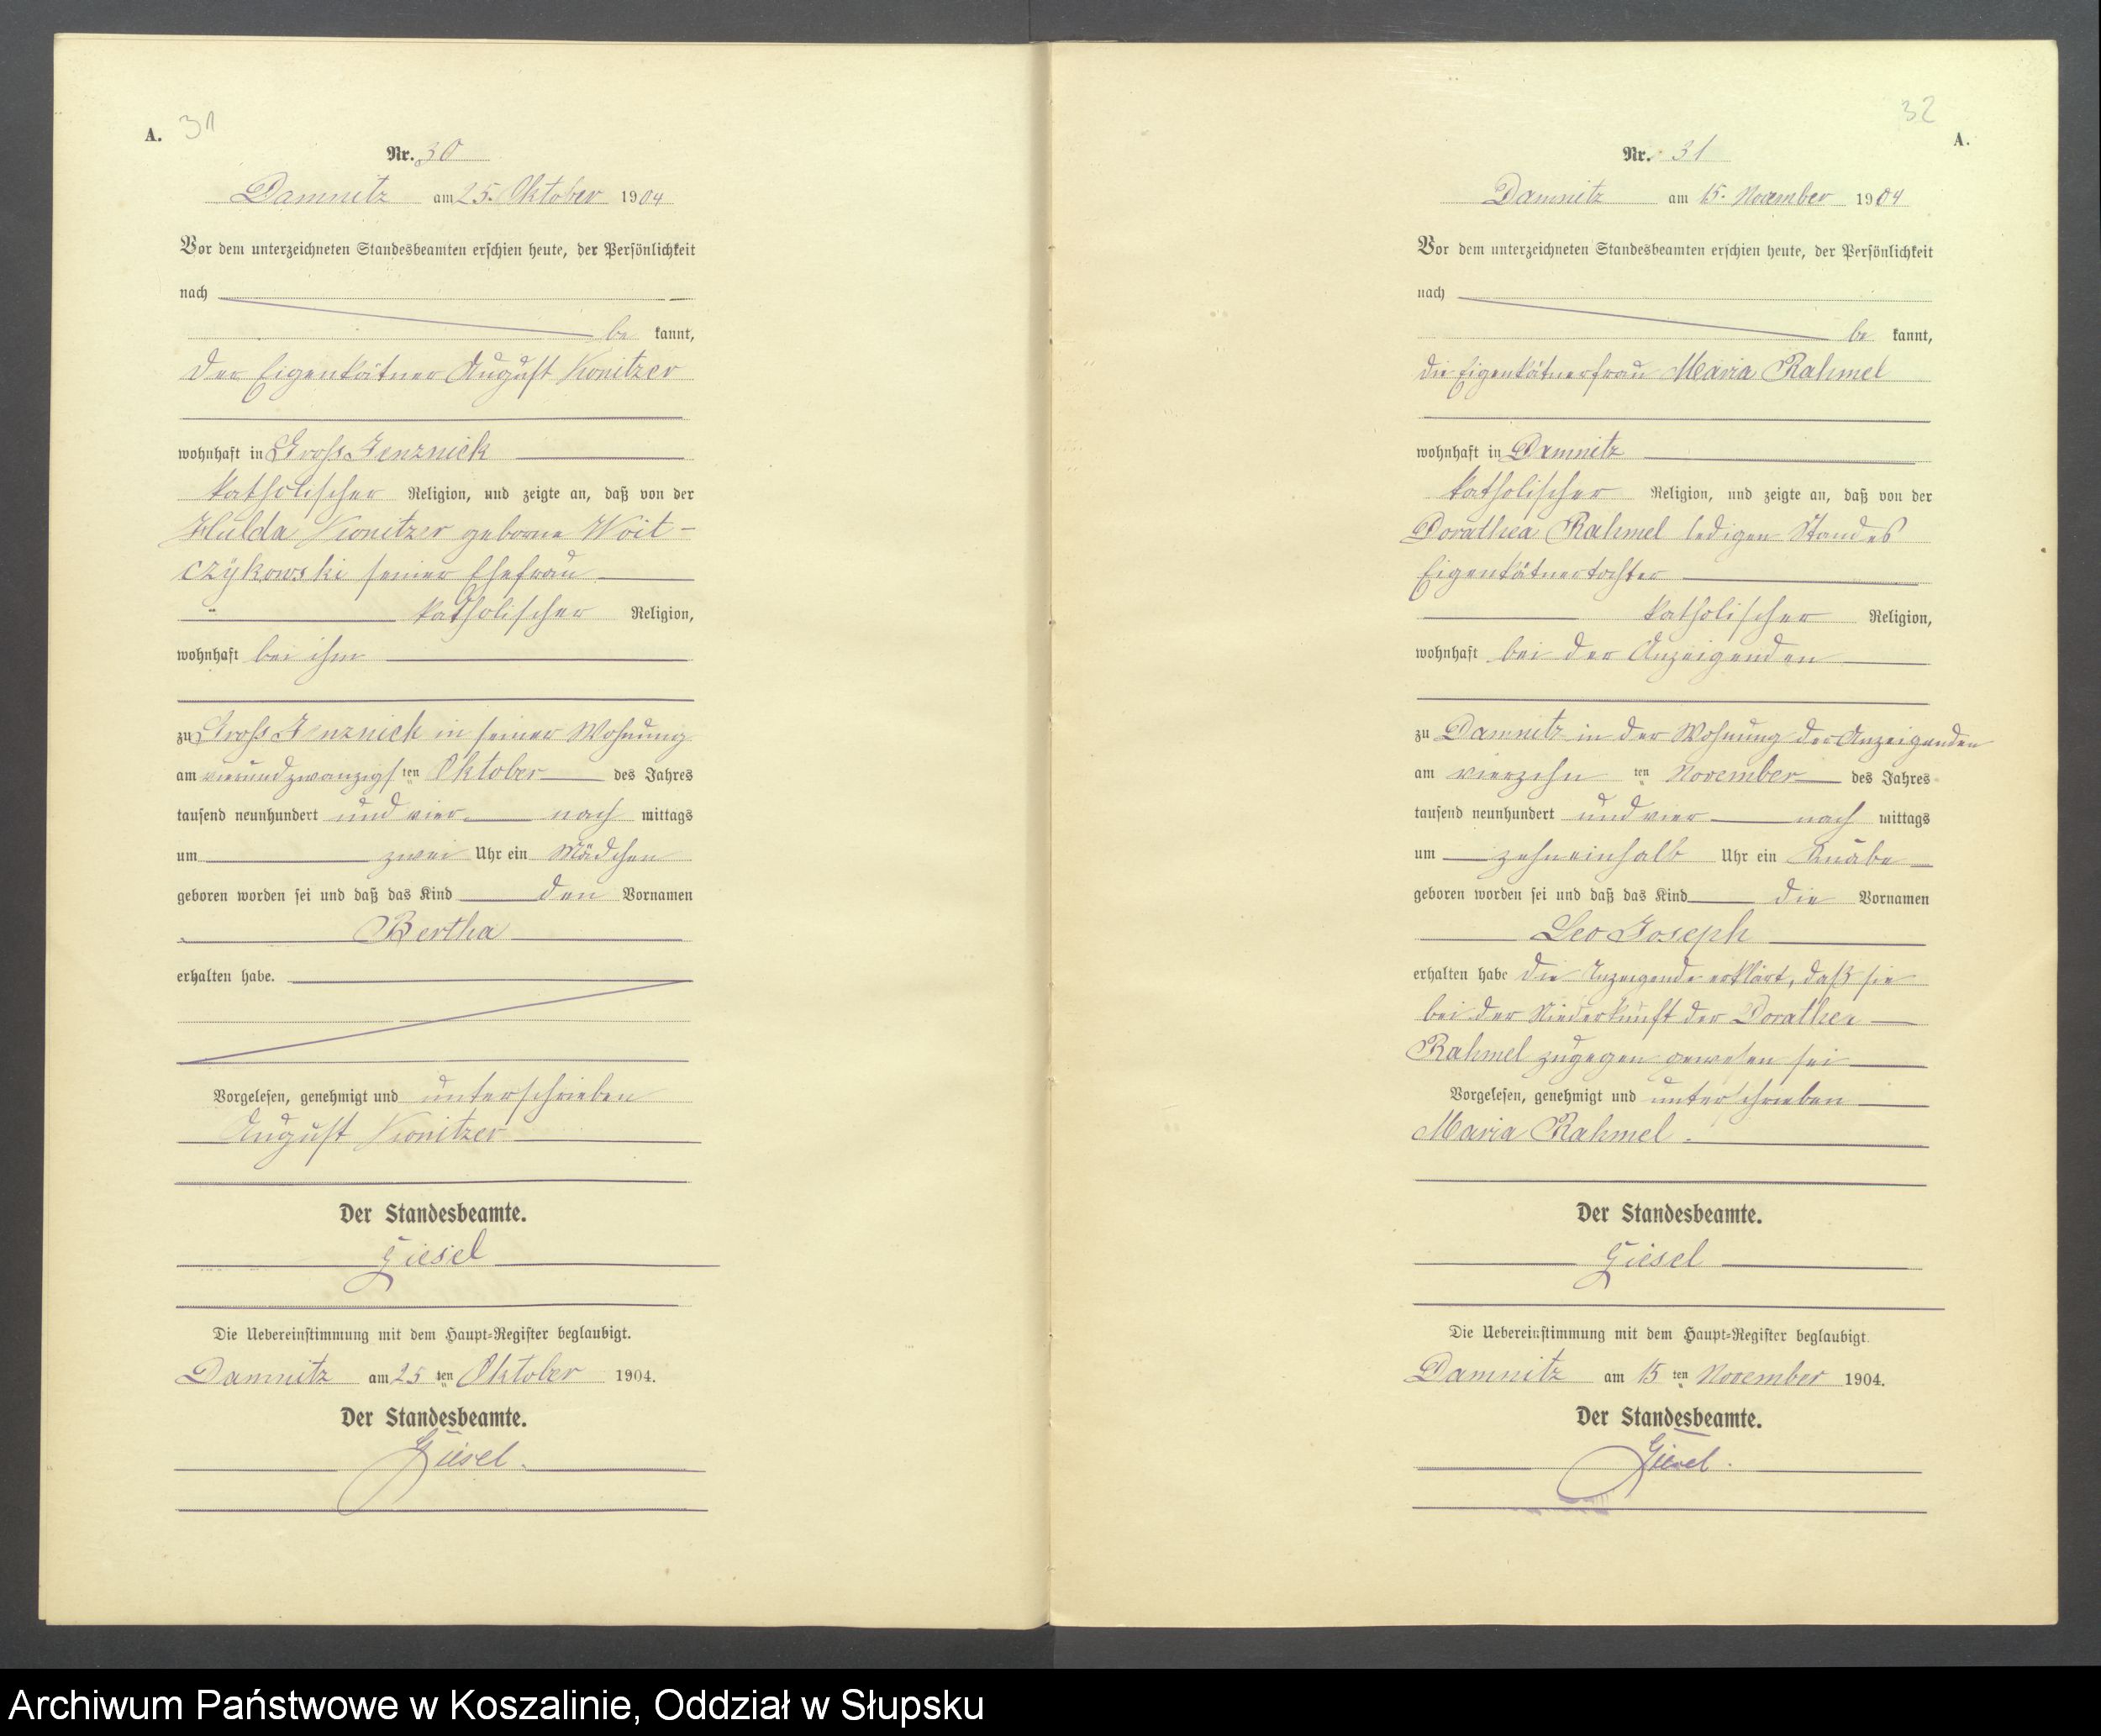 A. 31
Nr. 30
Damnitz am 25. Oktober 1904
Vor dem unterzeichneten Standesbeamten erschien heute, der Persönlichkeit
nach
be kannt,
der Eigenkätner August Konitzer
wohnhaft in Gross Jenznick
katholischer Religion, und zeigte an, daß von der
Hulda Konitzer geborne Woit-
czÿkowski seiner Ehefrau
katholischer Religion,
wohnhaft bei ihm
zu Gross Jenznick in seiner Wohnung
am vierundzwanzigsten Oktober des Jahres
tausend neunhundert und vier nach mittags
um zwei Uhr ein Mädchen
geboren worden sei und daß das Kind den Vornamen
Bertha
erhalten habe.
Vorgelesen, genehmigt und unterschrieben
August Konitzer
Der Standesbeamte.
Giesel
Die Uebereinstimmung mit dem Haupt-Register beglaubigt.
Damnitz am 25 ten Oktober 1904.
Der Standesbeamte.
Giesel.
32
A.
Nr. 31
Damnitz am 15. November 1904
Vor dem unterzeichneten Standesbeamten erschien heute, der Persönlichkeit
nach
be kannt,
die Eigenkätnerfrau Maria Rahmel
wohnhaft in Damnitz
katholischer Religion, und zeigte an, daß von der
Dorathea Rahmel ledigen Standes
Eigenkätnertochter
katholischer Religion,
wohnhaft bei der Anzeigenden
zu Damnitz in der Wohnung der Anzeigenden
am vierzehn ten November des Jahres
tausend neunhundert und vier nach mittags
um zehneinhalb Uhr ein Knabe
geboren worden sei und daß das Kind die Vornamen
Leo Joseph
erhalten habe die Anzeigende erklärt, daß sie
bei der Niederkunft der Dorathea
Rahmel zugegen gewesen sei
Vorgelesen, genehmigt und unterschrieben
Maria Rahmel.
Der Standesbeamte.
Giesel
Die Uebereinstimmung mit dem Haupt-Register beglaubigt.
Damnitz am 15 ten November 1904.
Der Standesbeamte.
Giesel.
Archiwum Państwowe w Koszalinie, Oddział w Słupsku